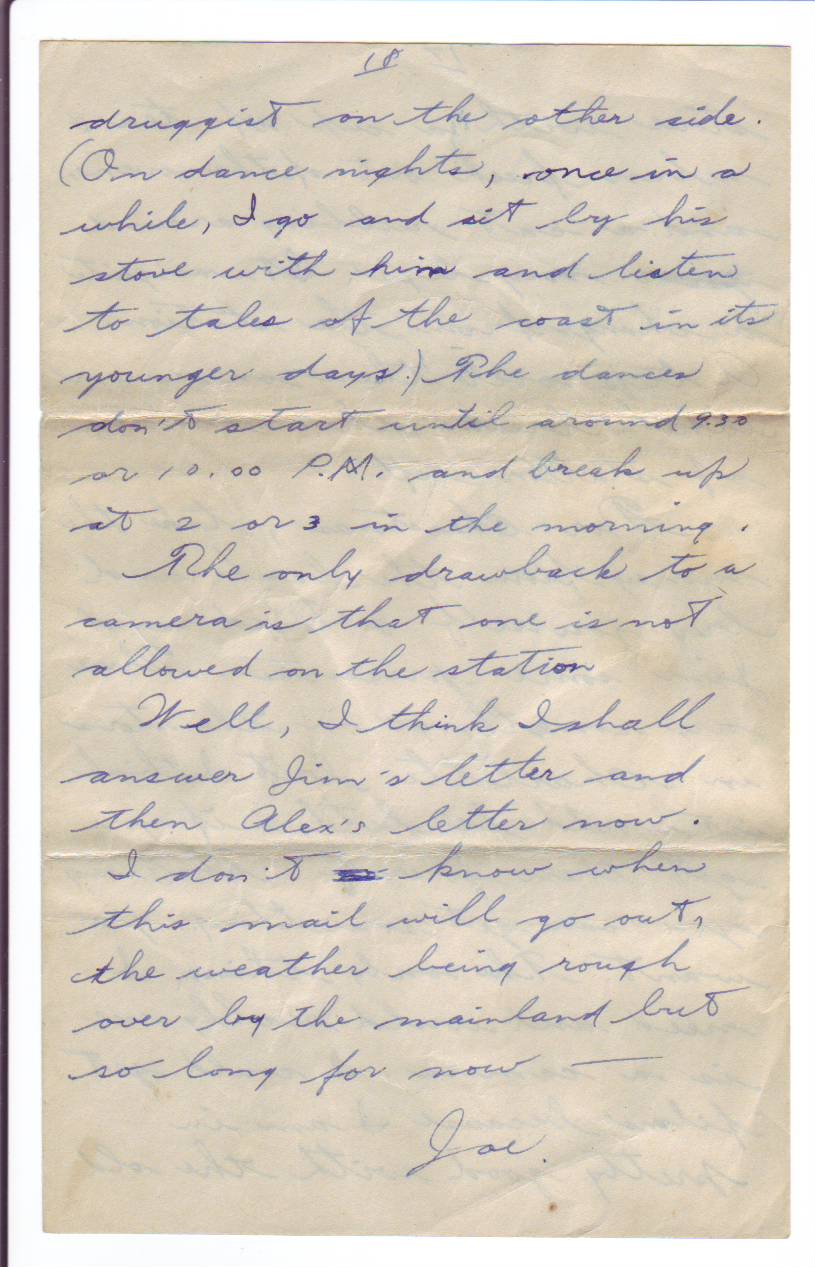 18
druggist on the other side.
(On dance nights, once in a
while, I go and sit by his
stove with him and listen
to tales of the coast in its
younger days.) The dances
don't start until around 9.30
or 10.00 P.M. and break up
at 2 or 3 in the morning.
The only drawback to a
camera is that one is not
allowed on the station
Well, I think I shall
answer Jim's letter and
then Alex's letter now.
I don't know when
this mail will go out,
the weather being rough
over by the mainland but
so long for now —
Joe.